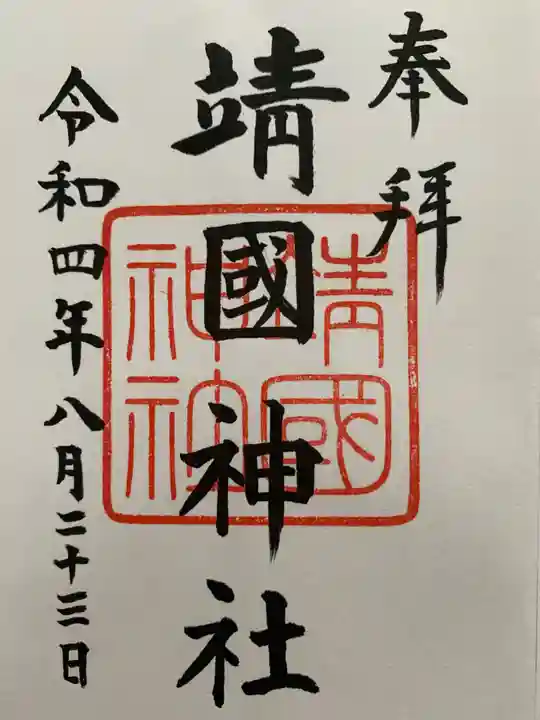 奉拝
靖國神社
令和四年八月二十三日
靖國
神社